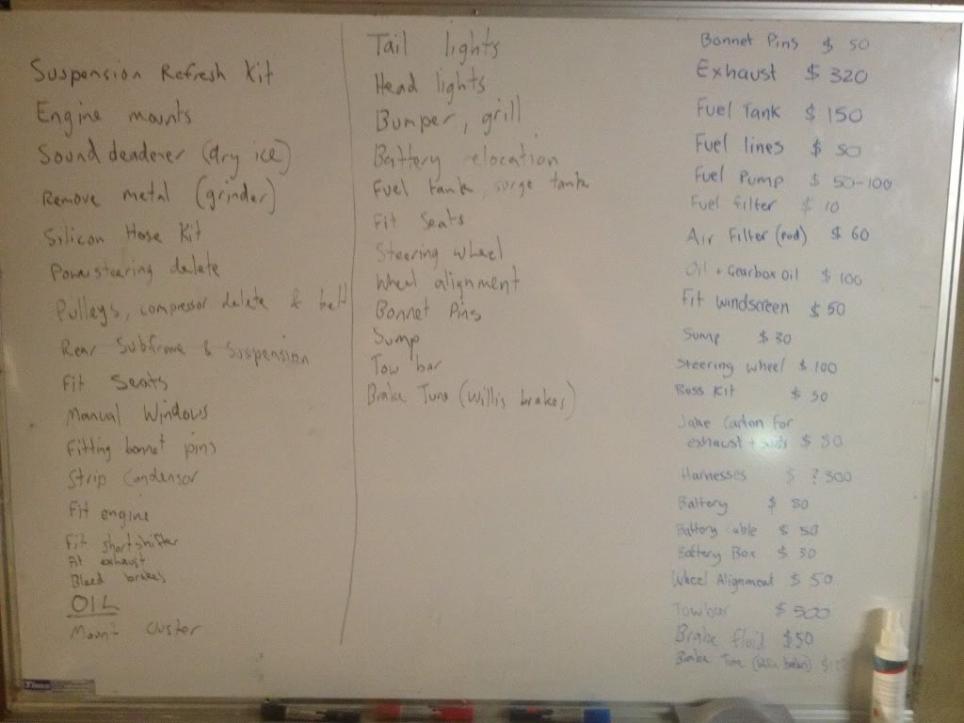 Suspension Refresh Kit
Engine mounts
Sound deadener (dry ice)
Remove metal (grinder)
Silicon Hose Kit
Powersteering delete
Pulleys, compressor delete & belt
Rear Subframe & Suspension
Fit Seats
Manual Windows
Fitting bonnet pins
Strip Condensor
Fit engine
Fit shortshifter
Fit exhaust
Bleed brakes
OIL
Mount Cluster
Tail lights
Head lights
Bumper, grill
Battery relocation
Fuel tank, surge tank
Fit Seats
Steering wheel
Wheel alignment
Bonnet Pins
Sump
Tow bar
Brake Tune (Willis brakes)
Bonnet Pins $ 50
Exhaust $ 320
Fuel Tank $ 150
Fuel lines $ 50
Fuel Pump $ 50-100
Fuel filter $ 10
Air Filter (pod) $ 60
Oil + Gearbox Oil $ 100
Fit windscreen $ 50
Sump $ 30
Steering wheel $ 100
Boss Kit $ 50
Carton for
exhaust + $ 80
Harnesses $ ? 300
Battery $ 80
Battery cable $ 50
Battery Box $ 30
Wheel Alignment $ 50
Towbar $ 500
Brake fluid $50
Brake Tune